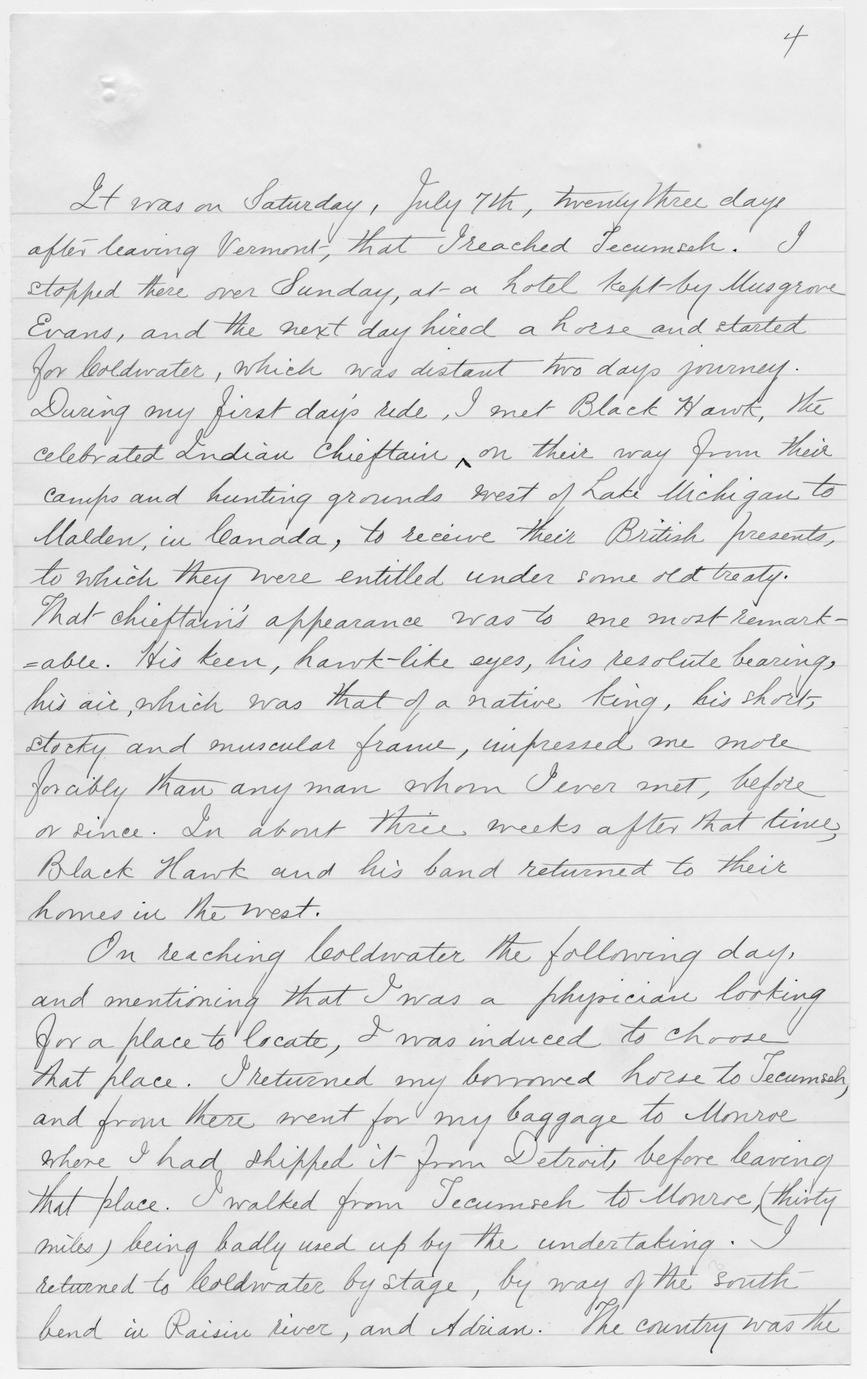 4
It was on Saturday, July 7th, twenty three days
after leaving Vermont, that I reached Tecumseh. I
stopped there over Sunday, at a hotel kept by Musgrove
Evans, and the next day hired a horse and started
for Coldwater, which was distant two days journey.
During my first day's ride, I met Black Hawk, the
celebrated Indian Chieftain ^ on their way from their
camps and hunting grounds west of Lake Michigan to
Malden, in Canada, to receive their British presents,
to which they were entitled under some old treaty.
That chieftain's appearance was to me most remark-
=able. His keen, hawk-like eyes, his resolute bearing,
his air, which was that of a native king, his short,
stocky and muscular frame, impressed me more
forcibly than any man whom I ever met, before
or since. In about three weeks after that time,
Black Hawk and his band returned to their
homes in the west.
On reaching Coldwater the following day,
and mentioning that I was a physician looking
for a place to locate, I was induced to choose
that place. I returned my borrowed horse to Tecumseh,
and from there went for my baggage to Monroe
where I had shipped it from Detroit, before leaving
that place. I walked from Tecumseh to Monroe, (thirty
miles) being badly used up by the undertaking. I
returned to Coldwater by stage, by way of the south
bend in Raisin river, and Adrian. The country was the